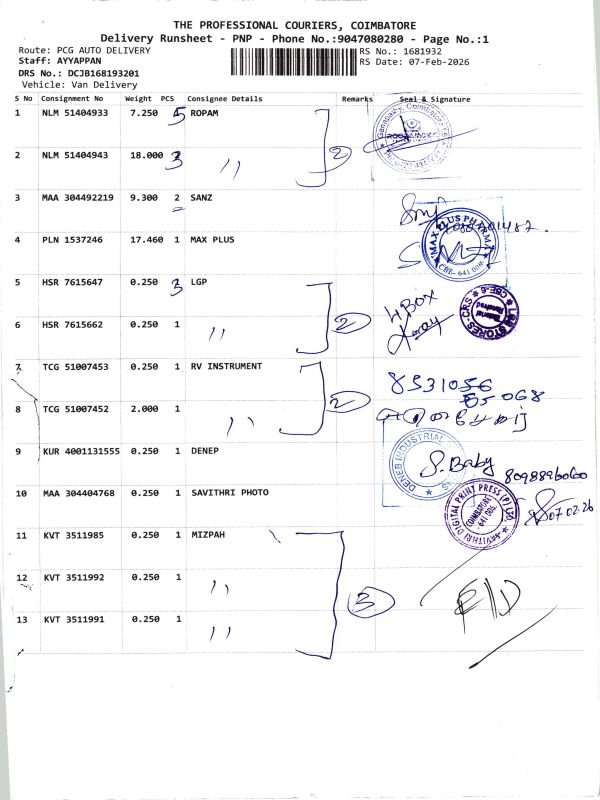 THE PROFESSIONAL COURIERS, COIMBATORE
Delivery Runsheet - PNP - Phone No.:9047080280 - Page No.:1
Route: PCG AUTO DELIVERY
RS No.: 1681932
Staff: AYYAPPAN
RS Date: 07-Feb-2026
DRS No.: DCJB168193201
Vehicle: Van Delivery
S No Consignment No Weight PCS Consignee Details Remarks Seal & Signature
1 NLM 51404933 7.250 5 ROPAM
2 NLM 51404943 18.000 3 〃 2
3 MAA 304492219 9.300 2 SANZ
4 PLN 1537246 17.460 1 MAX PLUS
MAX PLUS PHARMA
CBE- 641 006
5 HSR 7615647 0.250 3 LGP
4 BOX
6 HSR 7615662 0.250 1 〃 2
LGP STORES-CRS
CBE-6
Material Received
7 TCG 51007453 0.250 1 RV INSTRUMENT
8531056
65068
8 TCG 51007452 2.000 1 〃 2
9 KUR 4001131555 0.250 1 DENEP
DENEB INDUSTRIAL
S. Baby
8098896060
10 MAA 304404768 0.250 1 SAVITHRI PHOTO
SAVITHRI DIGITAL PRINT PRESS (P) LTD
COIMBATORE - 641 006.
07.02.26
11 KVT 3511985 0.250 1 MIZPAH
12 KVT 3511992 0.250 1 〃 3
13 KVT 3511991 0.250 1 〃